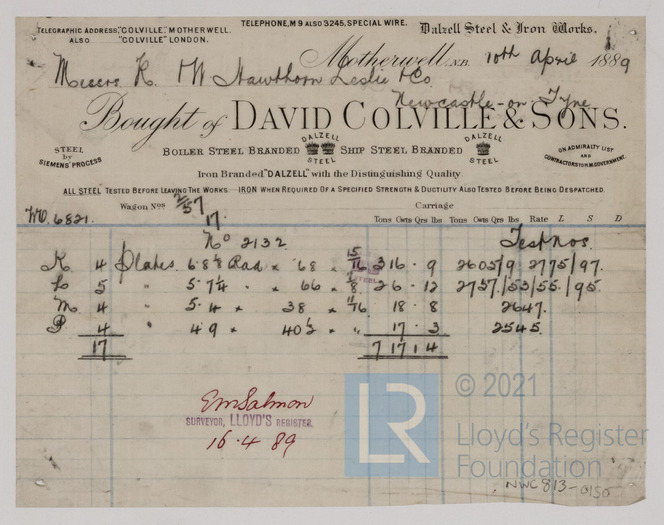 TELEGRAPHIC ADDRESS, "COLVILLE" MOTHERWELL.
ALSO "COLVILLE" LONDON.
TELEPHONE, Nº 9 ALSO 3245, SPECIAL WIRE.
Dalzell Steel & Iron Works.
Motherwell, N.B. 10th April 1889
Messrs R. & W Hawthorn Leslie & Co
Newcastle-on-Tyne
Bought of DAVID COLVILLE & SONS.
STEEL by SIEMENS' PROCESS
BOILER STEEL BRANDED DALZELL STEEL SHIP STEEL BRANDED DALZELL STEEL
ON ADMIRALTY LIST AND CONTRACTORS FOR H.M. GOVERNMENT.
Iron Branded "DALZELL" with the Distinguishing Quality.
ALL STEEL TESTED BEFORE LEAVING THE WORKS.—IRON WHEN REQUIRED OF A SPECIFIED STRENGTH & DUCTILITY ALSO TESTED BEFORE BEING DESPATCHED.
Wagon Nos 17. Carriage
WO. 6821.
Tons Cwts Qrs lbs Tons Cwts Qrs lbs Rate L S D
No 2132 Test Nos.
K 4 Plates 6.8⅝ Rad × 68 × 15/16 2 16 . 9 2605/9 2775/97.
L 5 " 5.7¼ " × 66 × 7/8 2 6 . 12 2737/53/55/95
M 4 " 5.4 × 38 × 11/16 18 . 8 2647.
P 4 " 4.9 × 40½ × " 17 . 3 2545.
17 7 17 1 4
E M Salmon
SURVEYOR, LLOYD'S REGISTER.
16.4.89
LR
© 2021
Lloyd's Register
Foundation
NWC813-0150